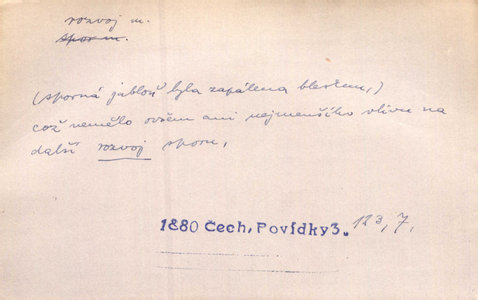 rozvoj m.
spor m.
(sporná jabloň byla zapálena bleskem,)
což nemělo ovšem ani nejmenšího vlivu na
další rozvoj sporu,
1880 Čech, Povídky3. 123, 7,